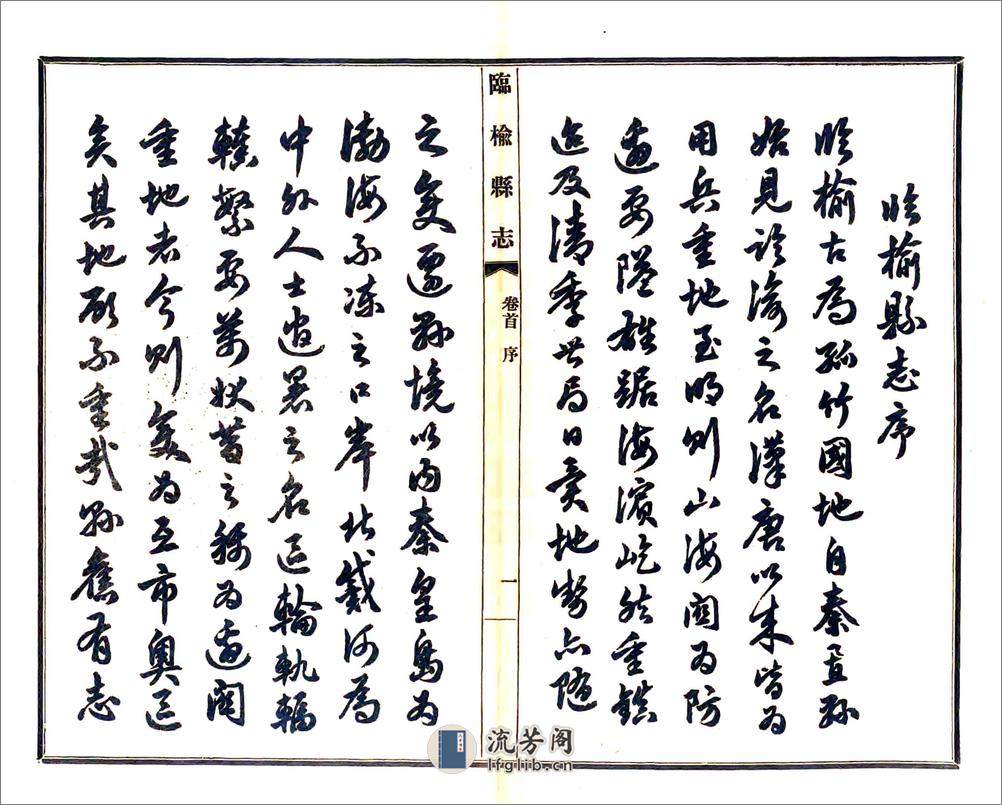 臨榆縣志序
臨榆古為孤竹國地自秦置縣
始見臨渝之名漢唐以來皆為
用兵重地至明則山海關為防
邊要隘雄踞海濱屹然重鎮
迨及清季世局日變地勢亦隨
臨榆縣志
卷首 序
一
之變遷縣境以內秦皇島為
渤海不凍之口岸北戴河為
中外人士避暑之名區輪軌輻
轃繁要萬狀昔之稱為邊關
重地者今則變為互市奧區
矣其地顧不重哉縣舊有志
流芳阁
lfglib.cn